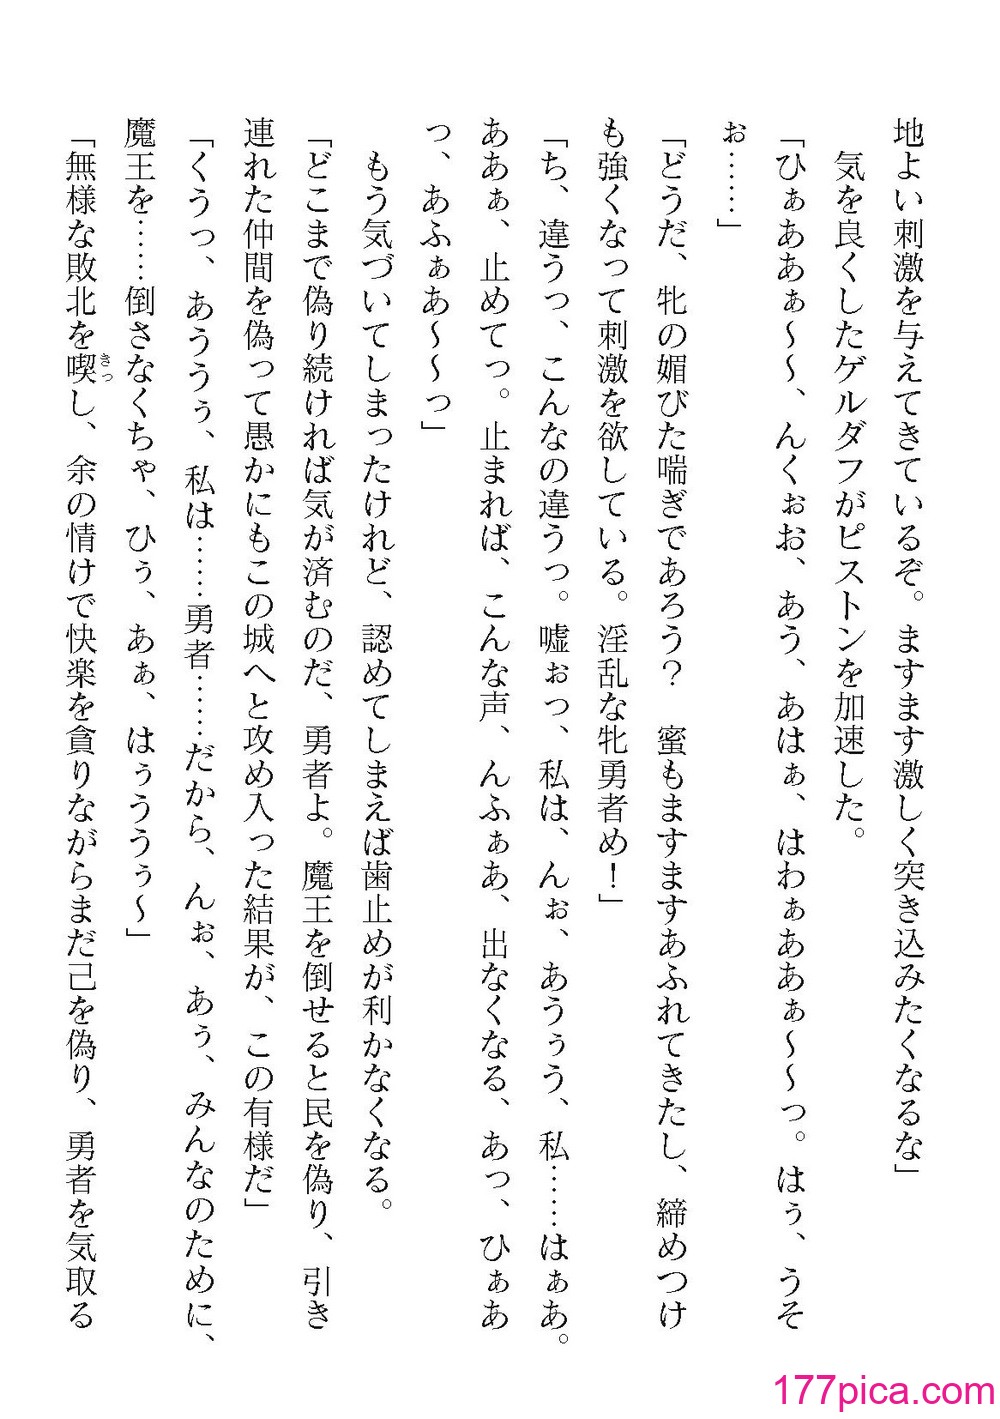 地よい刺激を与えてきているぞ。ますます激しく突き込みたくなるな」
　気を良くしたゲルダフがピストンを加速した。
「ひぁああぁ～～、んくぉお、あう、あはぁ、はわぁああぁ～～っ。はぅ、うそ
ぉ……」
「どうだ、牝の媚びた喘ぎであろう？　蜜もますますあふれてきたし、締めつけ
も強くなって刺激を欲している。淫乱な牝勇者め！」
「ち、違うっ、こんなの違うっ。嘘ぉっ、私は、んぉ、あうぅう、私……はぁあ。
ああぁ、止めてっ。止まれば、こんな声、んふぁあ、出なくなる、あっ、ひぁあ
っ、あふぁあ～～っ」
　もう気づいてしまったけれど、認めてしまえば歯止めが利かなくなる。
「どこまで偽り続ければ気が済むのだ、勇者よ。魔王を倒せると民を偽り、引き
連れた仲間を偽って愚かにもこの城へと攻め入った結果が、この有様だ」
「くうっ、あううぅ、私は……勇者……だから、んぉ、あぅ、みんなのために、
魔王を……倒さなくちゃ、ひぅ、あぁ、はぅううぅ～」
「無様な敗北を喫きっし、余の情けで快楽を貪りながらまだ己を偽り、勇者を気取る
177pica.com